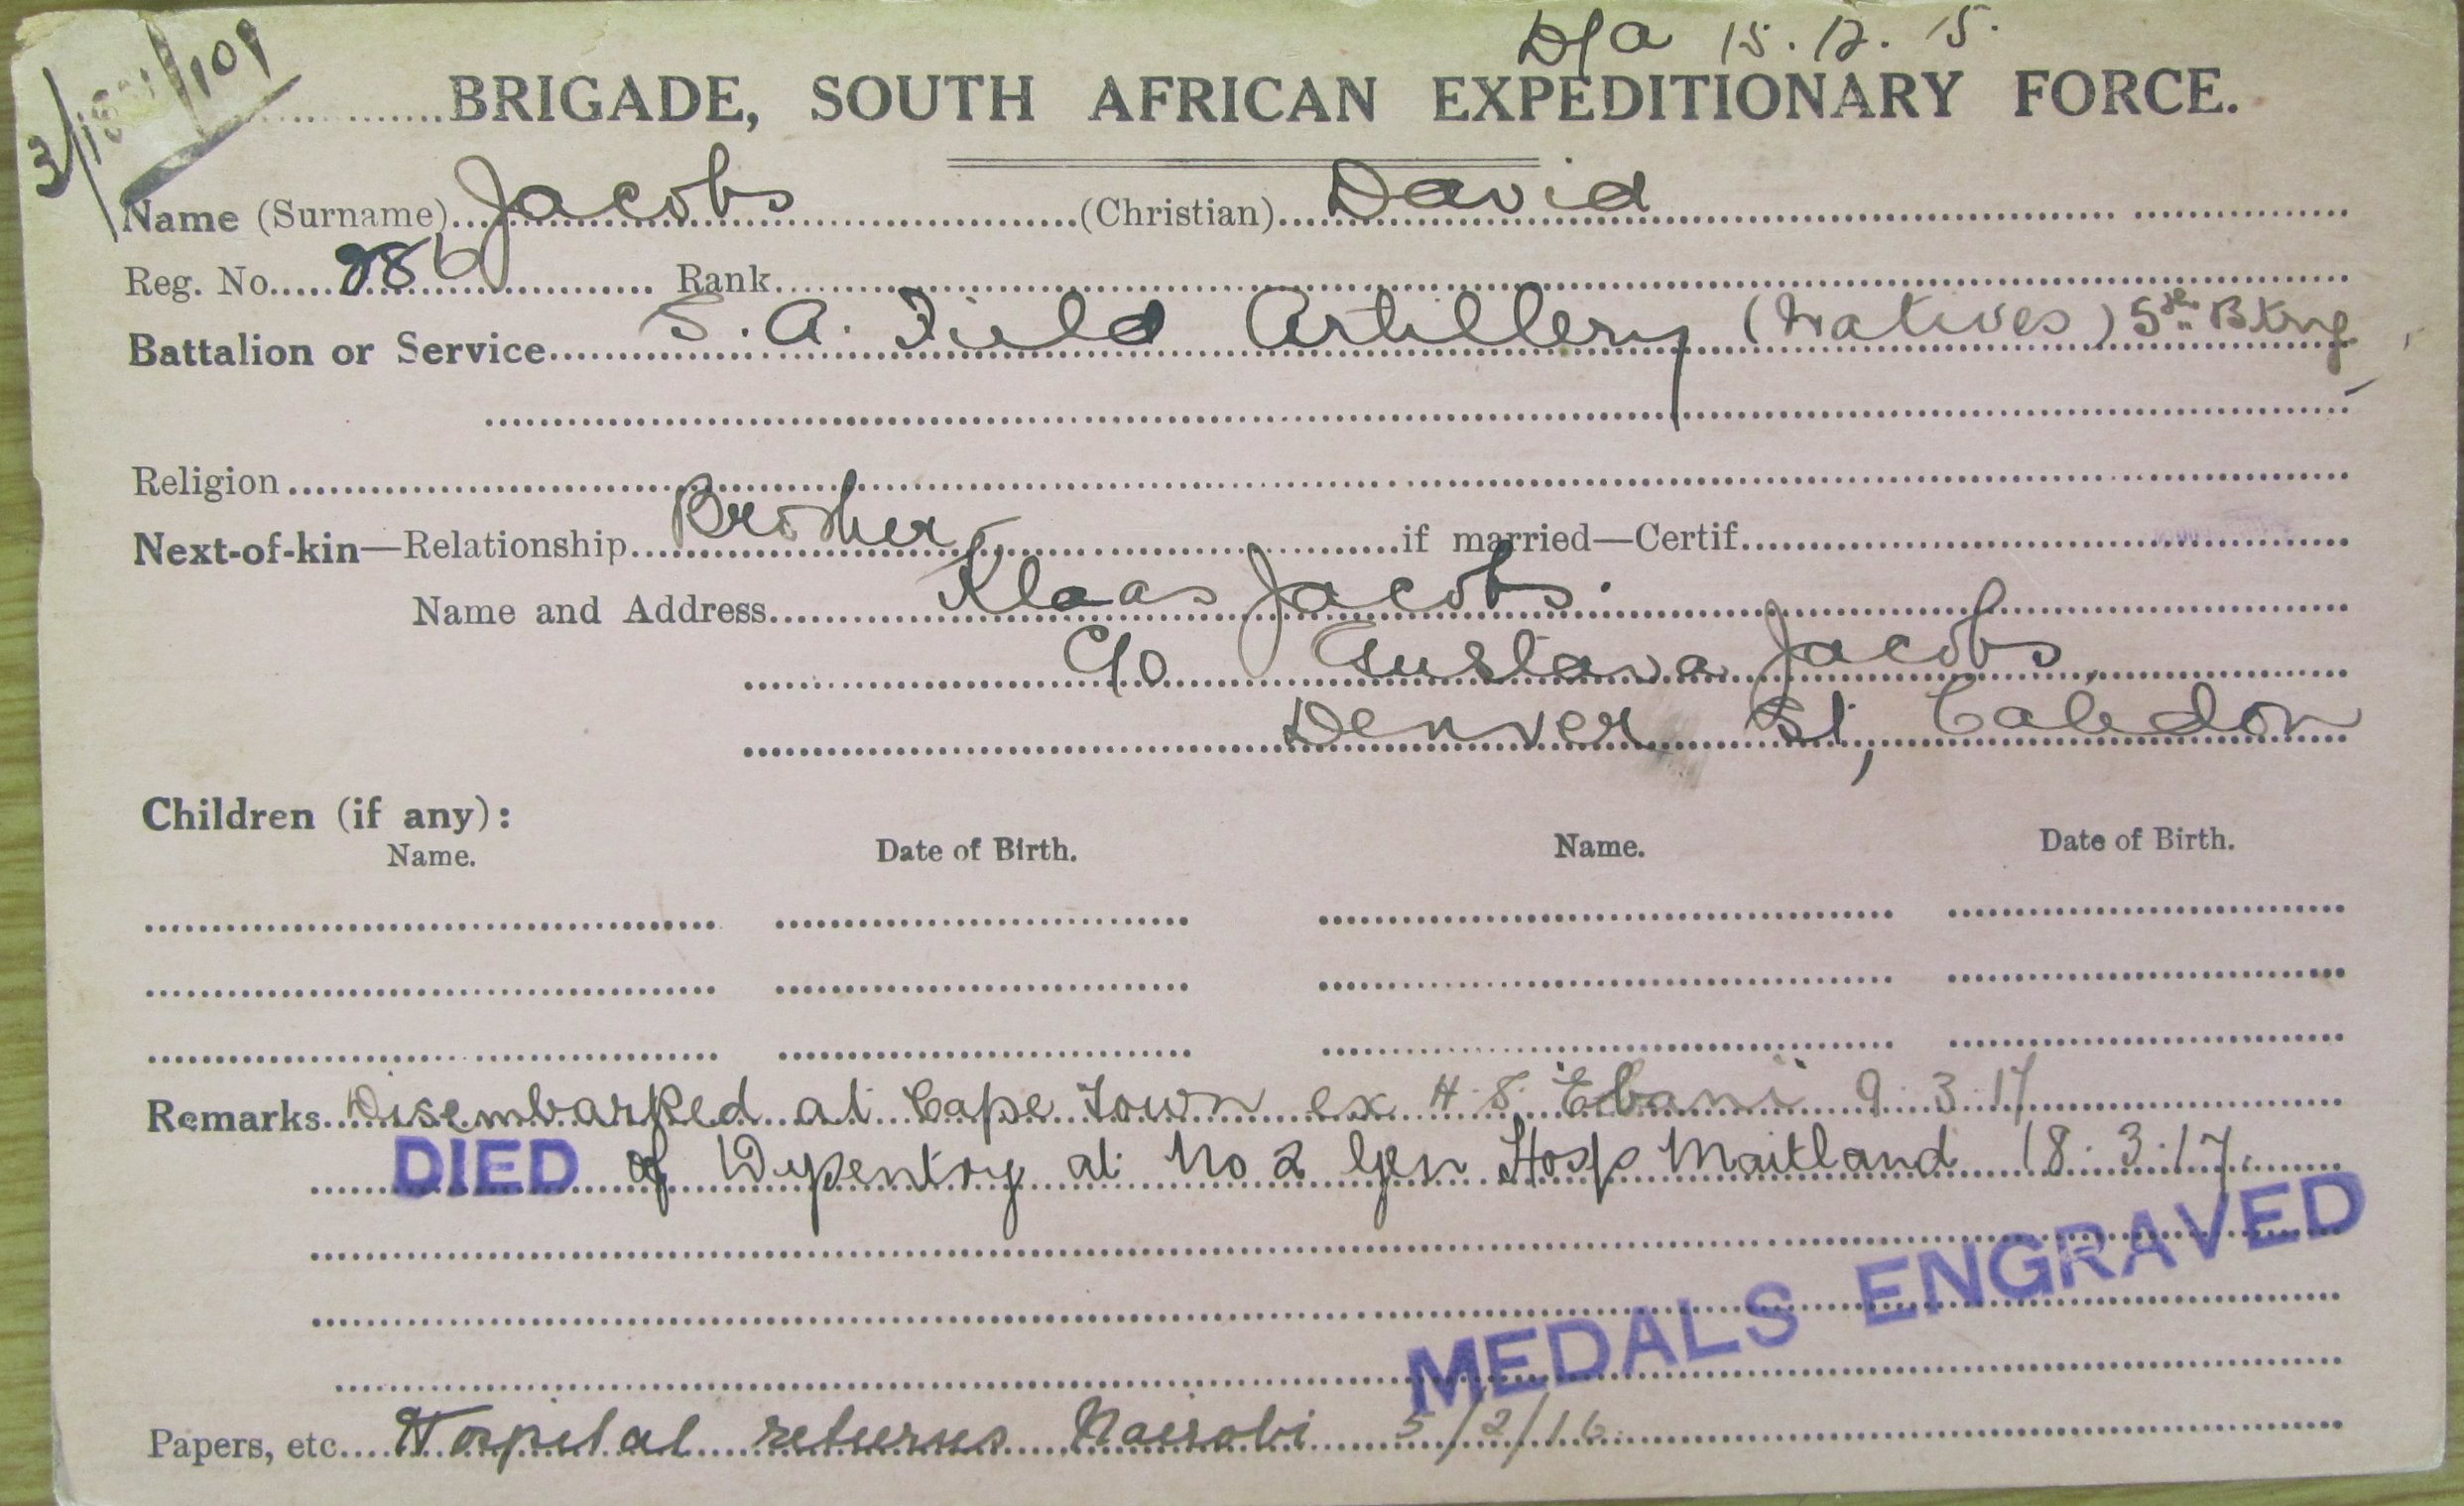 D/a 15.12.15.
BRIGADE, SOUTH AFRICAN EXPEDITIONARY FORCE.
Name (Surname) Jacobs (Christian) David
Reg. No. 286 Rank
Battalion or Service S.A. Field Artillery (Natives) 5th Btry
Religion
Next-of-kin—Relationship Brother if married—Certif.
Name and Address Klaas Jacobs.
C/o Gustava Jacobs,
Denver St, Caledon
Children (if any):
Name. Date of Birth. Name. Date of Birth.
Remarks Disembarked at Cape Town ex H.S. Ebani 9.3.17
DIED of Dysentry at No 2 Gen Hosp Maitland 18.3.17.
MEDALS ENGRAVED
Papers, etc. Hospital returns Nairobi 5/2/16